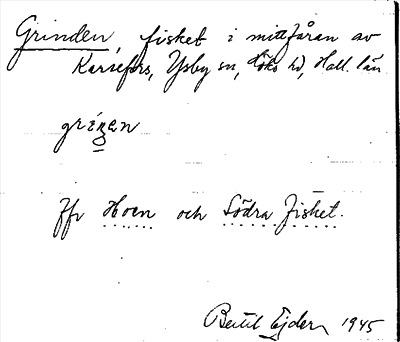 Grinden, fisket i mittfåran av
Karsefors, Ysby sn, Höks hd, Hall. län
grinen
Jfr Hoen och Södra fisket.
Bertil Ejder 1945